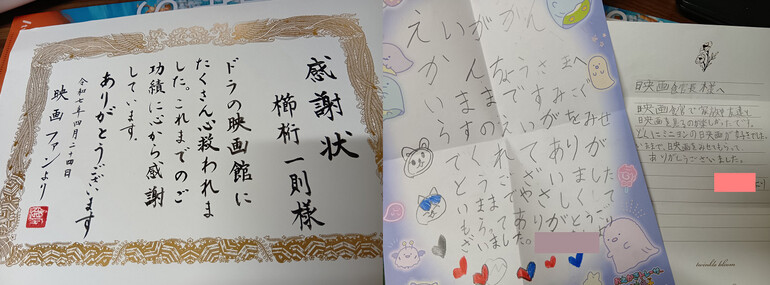 感謝状
櫛桁一則様
ドラの映画館に
たくさん心救われま
した。これまでのご
功績に心から感謝
しています。
ありがとうございます
令和七年四月二十四日
映画ファンより
えいがかん
かんちょうさまへ
いままですみっこぐ
らすのえいがをみせ
てくれてありが
とうございました
いままでやさしくして
もらってありがとうご
ざいました。
映画館長様へ
映画館で家族や友達と
映画を見るのが楽しかったです。
とくにミニオンの映画が好きです。
いままで、映画をみせてもらって
ありがとうございました。
より
twinkle bloom